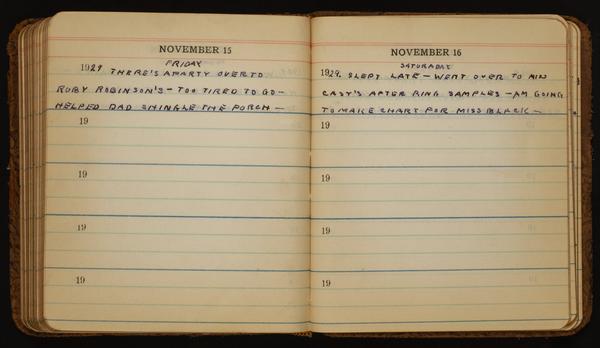 NOVEMBER 15
FRIDAY
1929 THERE'S A PARTY OVER TO
RUBY ROBINSON'S - TOO TIRED TO GO -
HELPED DAD SHINGLE THE PORCH -
19
19
19
19
NOVEMBER 16
SATURADAY
1929. SLEPT LATE - WENT OVER TO
CASY'S AFTER RING SAMPLES - AM GOING
TO MAKE CHART FOR MISS BLACK -
19
19
19
19